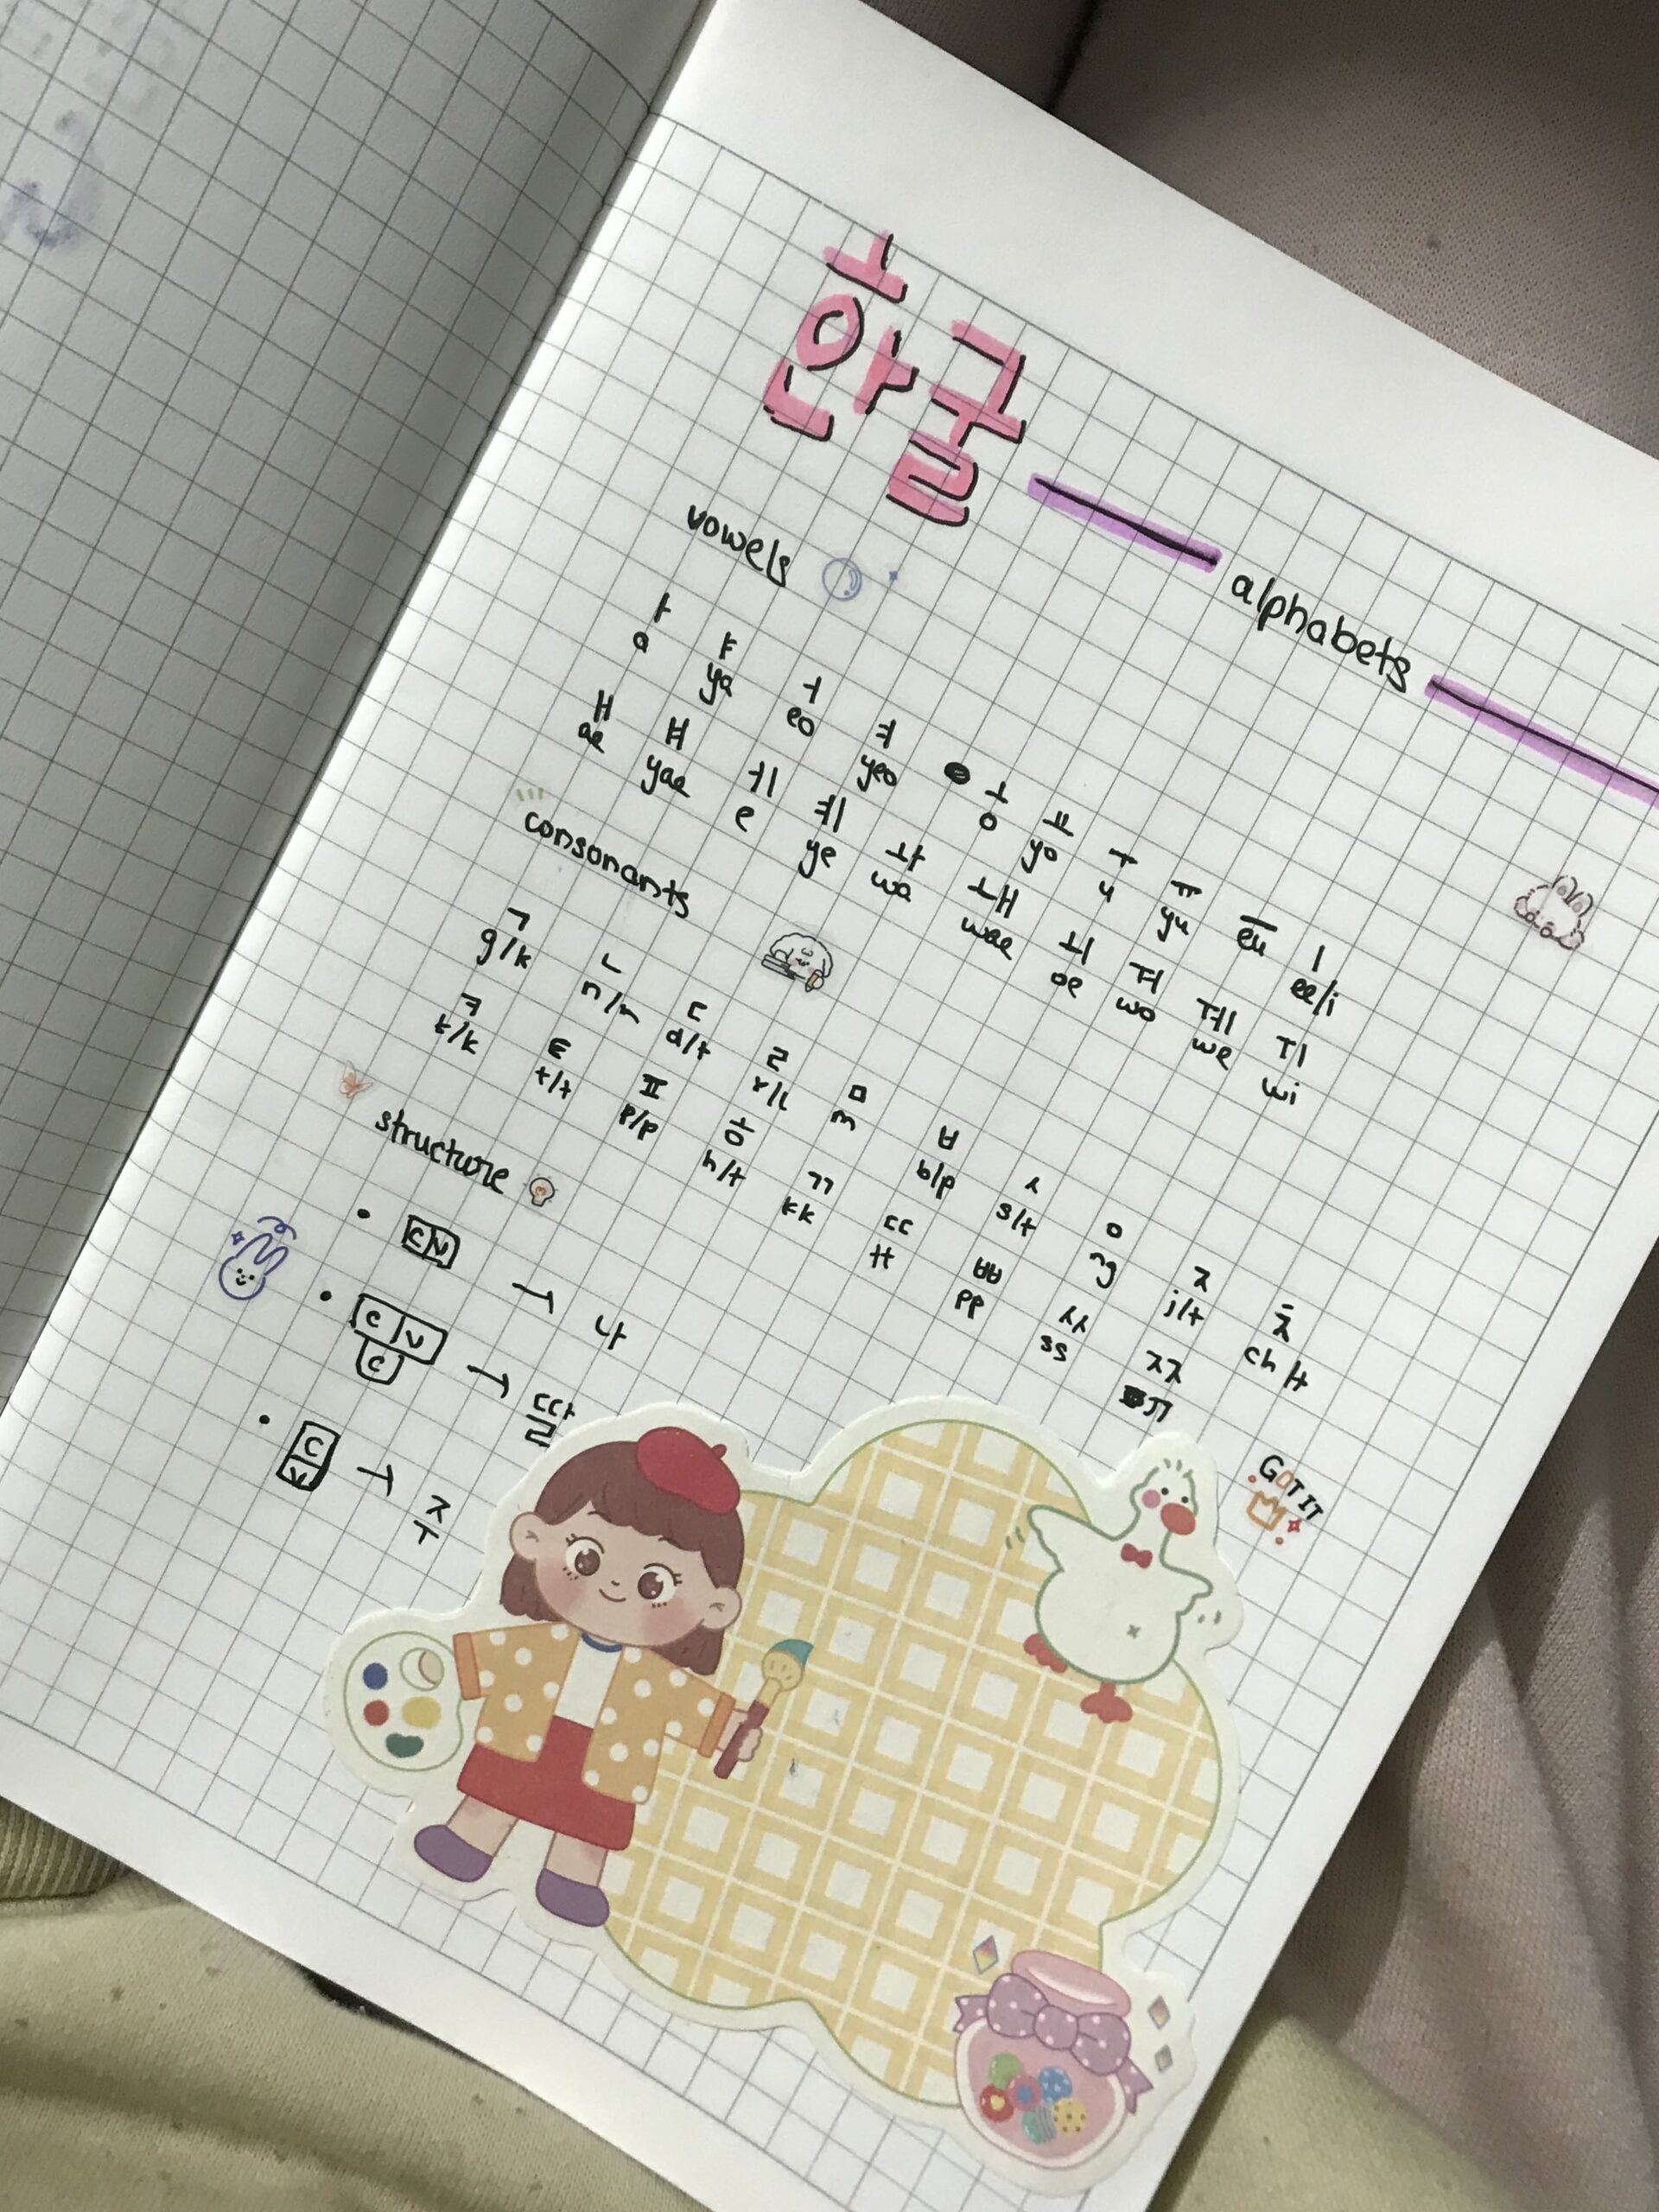 한굴 alphabets
vowels
ㅏ ㅑ ㅓ ㅕ ㅗ ㅛ ㅜ ㅠ ㅡ ㅣ
a ya eo yeo o yo u yu eu ee/i
ㅐ ㅒ ㅔ ㅖ ㅘ ㅙ ㅚ ㅝ ㅞ ㅟ
ae yae e ye wa wae oe wo we wi
consonants
ㄱ ㄴ ㄷ ㄹ ㅁ ㅂ ㅅ ㅇ ㅈ ㅊ
g/k n/n d/t r/l m b/p s/t ng j/t ch/t
ㅋ ㅌ ㅍ ㅎ ㄲ ㄸ ㅃ ㅆ ㅉ
k/k t/t p/p h/t kk tt pp ss jj
structure
• C V → 나
• C V
C → 딸
• C
V → 주
GOT IT